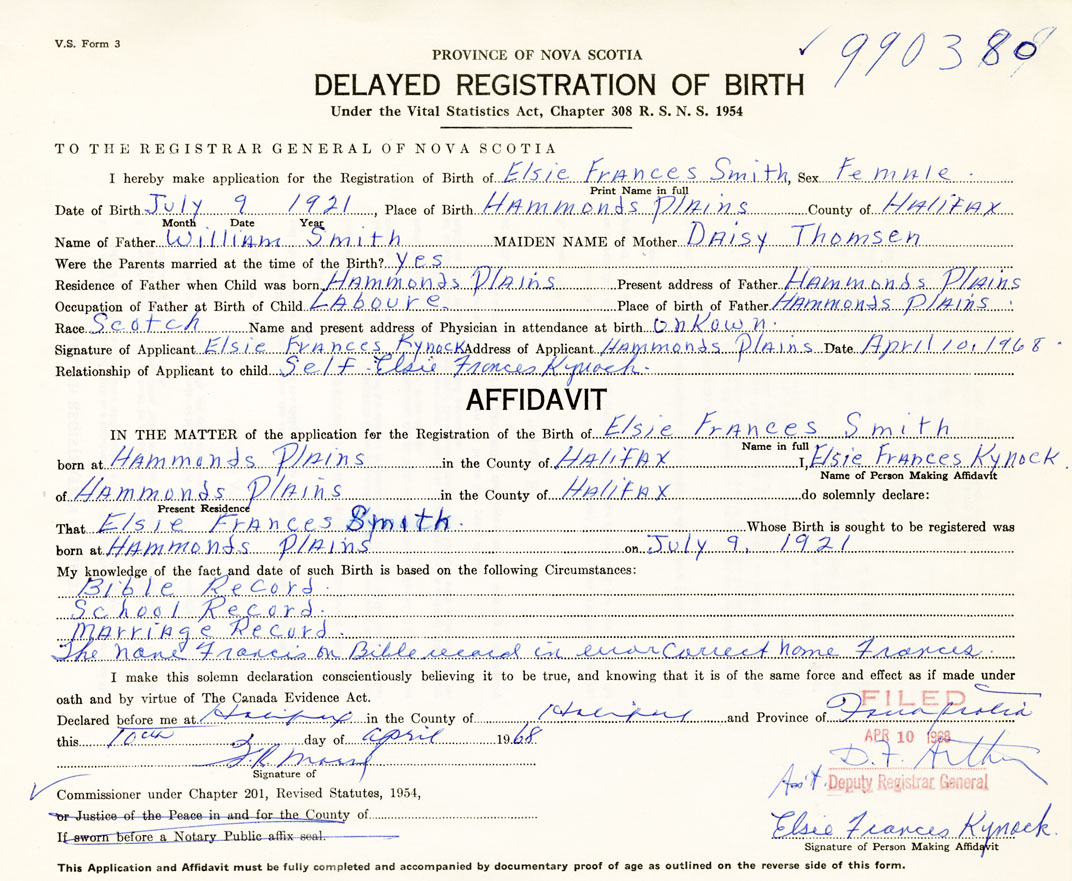 V.S. Form 3
PROVINCE OF NOVA SCOTIA
✓ 990380
DELAYED REGISTRATION OF BIRTH
Under the Vital Statistics Act, Chapter 308 R. S. N. S. 1954
TO THE REGISTRAR GENERAL OF NOVA SCOTIA
I hereby make application for the Registration of Birth of Elsie Frances Smith, Sex Female.
Print Name in full
Date of Birth July 9 1921, Place of Birth Hammonds Plains County of Halifax
Month Date Year
Name of Father William Smith MAIDEN NAME of Mother Daisy Thomsen
Were the Parents married at the time of the Birth? yes
Residence of Father when Child was born Hammonds Plains Present address of Father Hammonds Plains
Occupation of Father at Birth of Child Laboure. Place of birth of Father Hammonds Plains.
Race Scotch Name and present address of Physician in attendance at birth unKown.
Signature of Applicant Elsie Frances Kynock Address of Applicant Hammonds Plains Date April 10, 1968.
Relationship of Applicant to child Self - Elsie Frances Kynock.
AFFIDAVIT
IN THE MATTER of the application for the Registration of the Birth of Elsie Frances Smith
Name in full
born at Hammonds Plains in the County of Halifax I, Elsie Frances Kynock.
Name of Person Making Affidavit
of Hammonds Plains in the County of Halifax do solemnly declare:
Present Residence
That Elsie Frances Smith. Whose Birth is sought to be registered was
born at Hammonds Plains on July 9, 1921
My knowledge of the fact and date of such Birth is based on the following Circumstances:
Bible Record.
School Record.
Marriage Record.
The name Francis on Bible record in error Correct name Frances.
I make this solemn declaration conscientiously believing it to be true, and knowing that it is of the same force and effect as if made under
oath and by virtue of The Canada Evidence Act.
FILED
Declared before me at Halifax in the County of Halifax and Province of Nova Scotia
this 10th day of April 1968
APR 10 1968
D. F. Arthur
Signature of
Ass't. Deputy Registrar General
Commissioner under Chapter 201, Revised Statutes, 1954,
or Justice of the Peace in and for the County of
If sworn before a Notary Public affix seal.
Elsie Frances Kynock.
Signature of Person Making Affidavit
This Application and Affidavit must be fully completed and accompanied by documentary proof of age as outlined on the reverse side of this form.